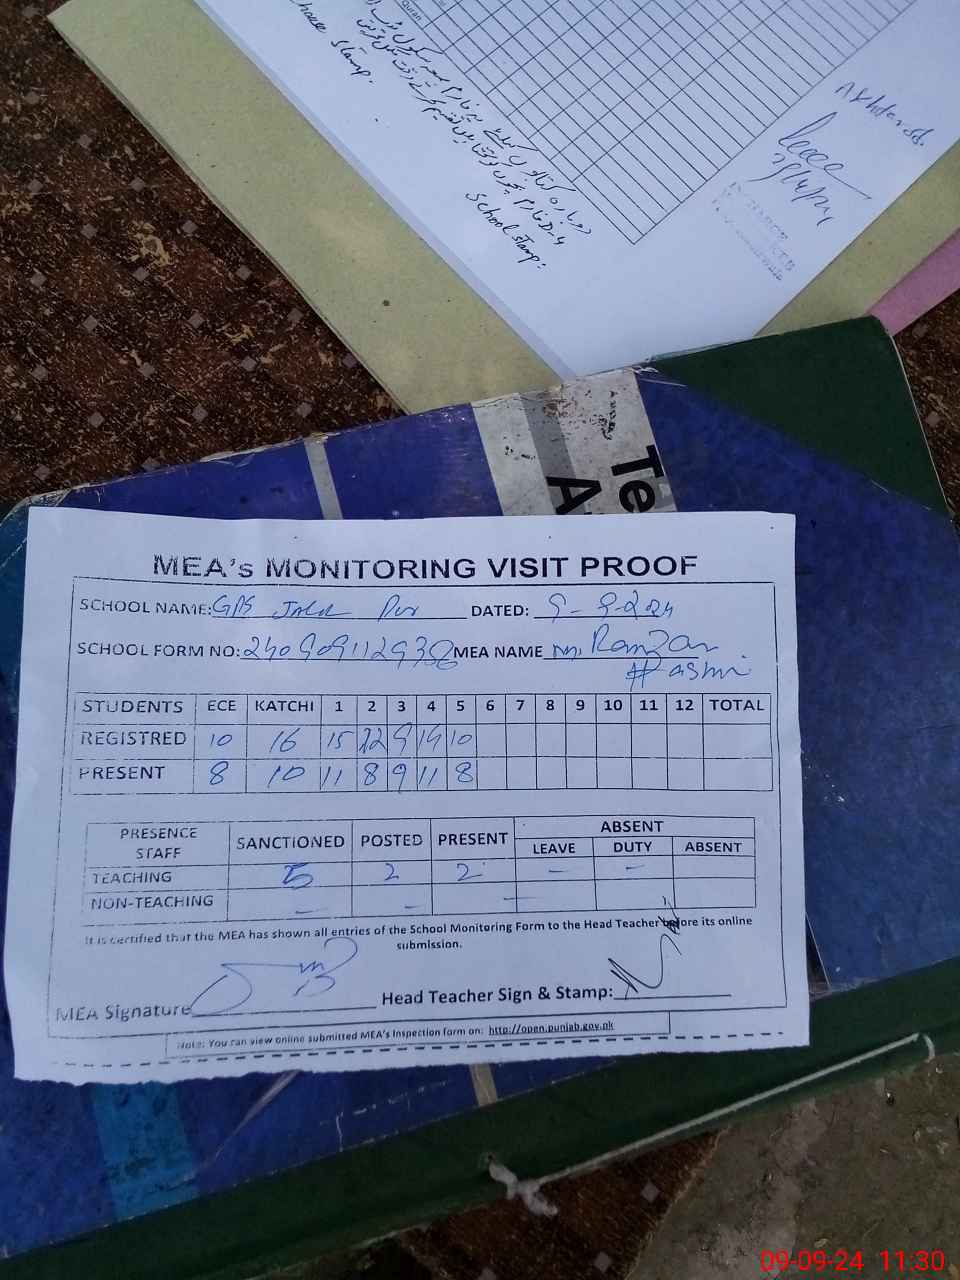 Quran
house stamp.
دوبارہ کتابوں کیلئے یہ فارم
D-4 فارم بچوں کو
School stamp:
Te
A
MEA's MONITORING VISIT PROOF
SCHOOL NAME: GPS DATED: 9-9-2024
SCHOOL FORM NO: MEA NAME M. Ramzan
Hashmi
STUDENTS ECE KATCHI 1 2 3 4 5 6 7 8 9 10 11 12 TOTAL
REGISTRED 10 16 15 12 9 14 10
PRESENT 8 10 11 8 9 11 8
PRESENCE STAFF SANCTIONED POSTED PRESENT ABSENT
LEAVE DUTY ABSENT
TEACHING 5 2 2 - -
NON-TEACHING - - -
It is certified that the MEA has shown all entries of the School Monitoring Form to the Head Teacher before its online
submission.
MEA Signature Head Teacher Sign & Stamp:
Note: You can view online submitted MEA's Inspection form on: http://open.punjab.gov.pk
09-09-24 11:30